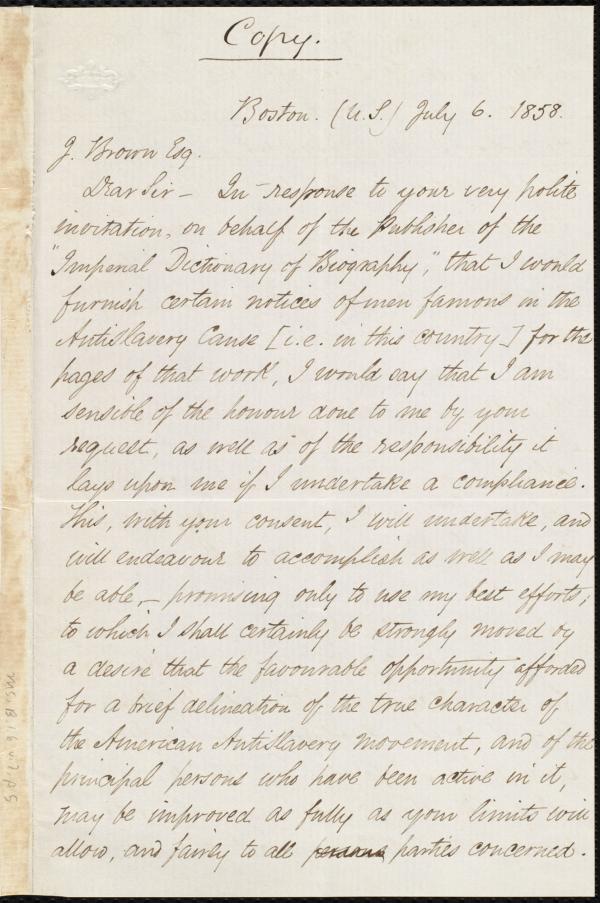 Copy.
Boston. (U.S.) July 6. 1858.
J. Brown Esq.
Dear Sir – In response to your very polite
invitation, on behalf of the Publisher of the
"Imperial Dictionary of Biography", that I would
furnish certain notices of men famous in the
Antislavery Cause [i.e. in this country] for the
pages of that work, I would say that I am
sensible of the honour done to me by your
request, as well as of the responsibility it
lays upon me if I undertake a compliance.
This, with your consent, I will undertake, and
will endeavour to accomplish as well as I may
be able, – promising only to use my best efforts;
to which I shall certainly be strongly moved by
a desire that the favourable opportunity afforded
for a brief delineation of the true character of
the American Antislavery movement, and of the
principal persons who have been active in it,
may be improved as fully as your limits will
allow, and fairly to all persons parties concerned.